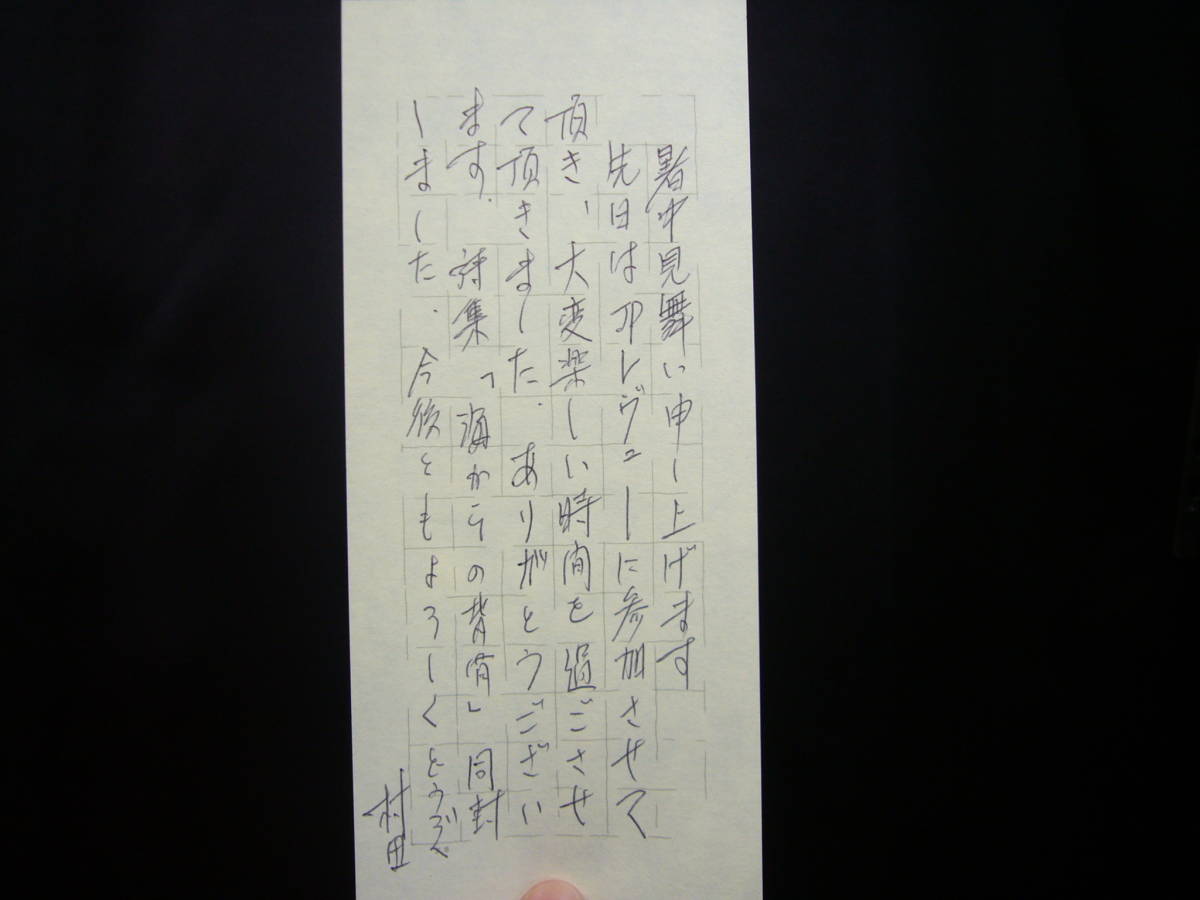 暑中見舞い申し上げます
先日はレヴューに参加させて
頂き、大変楽しい時間を過ごさせ
て頂きました. ありがとうござい
ます. 詩集「海からの」同封
しました. 今後ともよろしくどうぞ
村田